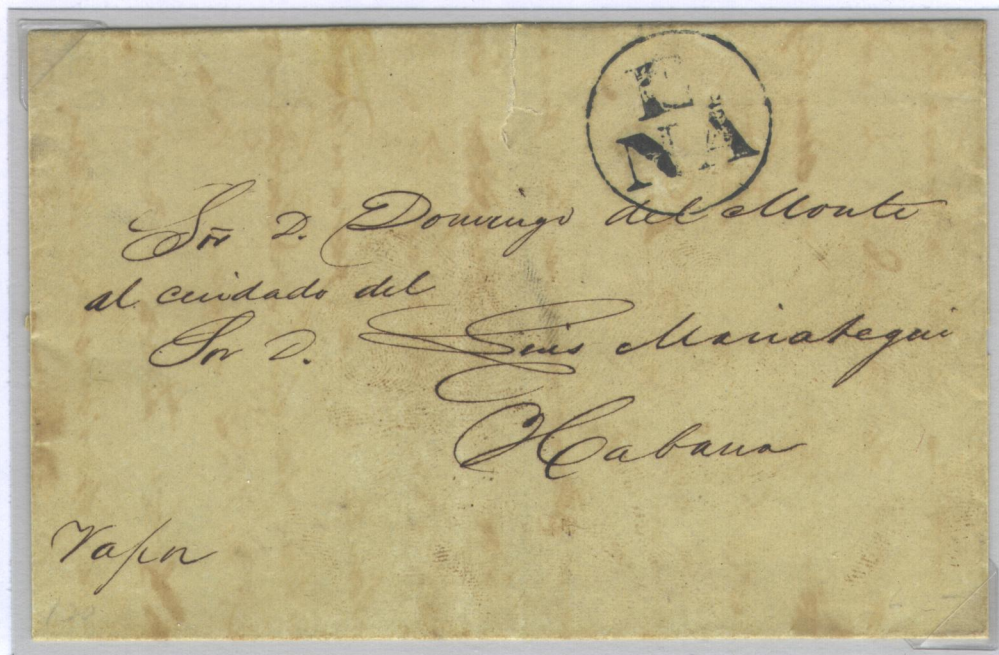 E
NA
Sor D. Domingo del Monte
al cuidado del
Sor D. Luis Mariategui
Habana
Vapor